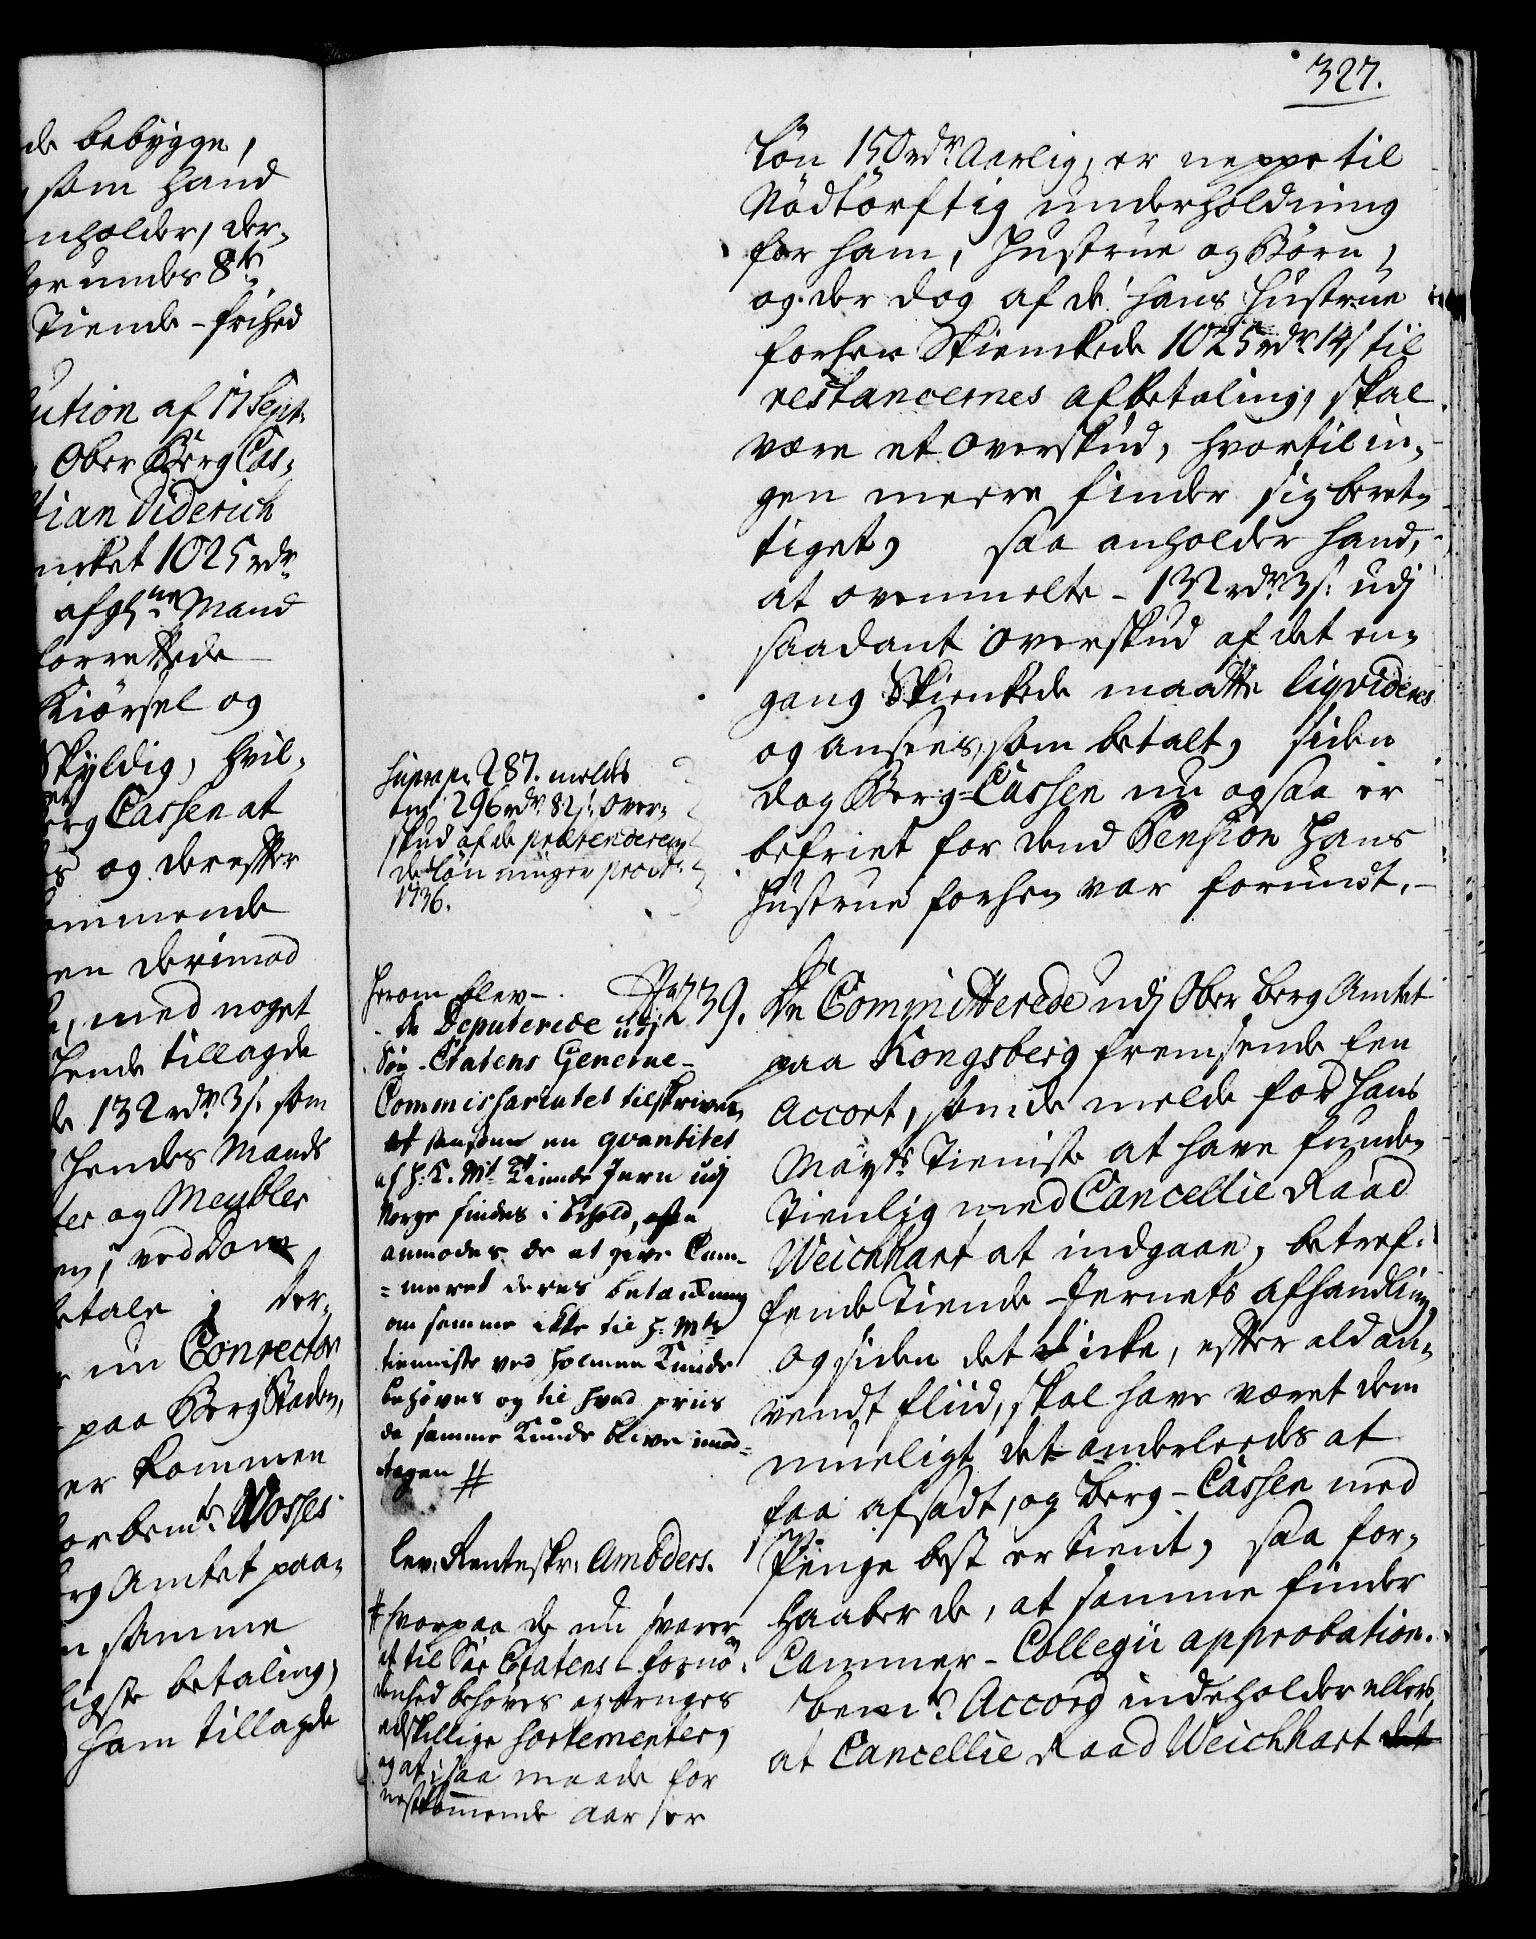 327.
de bebygge,
som hand
nholder, der-
for undes 8te
Tiende-frihed
ution af 17 Sept.
Ober Berg Cas-
tian Diderich
nket 1025 rdr
afgl. Mand
forrettede
Kiörsel og
Skyldig, hvil-
erg Cassen at
og derefter
ommende
en derimod
med noget
hende tillagde
de 132 rdr 3 s. som
hendes Mands
ter og Meubler
ved Dom
etale der-
nu Conrector
paa Berg Staden,
er kommen
orbemte Wosses
erg Amtet paa-
samme
ligste betaling,
ham tillagde
Lön 150 rdr Aarlig, er neppe til
Nödtörftig underholdning
for ham, Hustrue og Börn,
og der dog af de hans Hustrue
forhen Skienckede 1025 rdr 14 s til
restancernes afbetaling, skal
være et overskud, hvortil in-
gen meere finder sig beret-
tiget, saa anholder hand,
at ovenmelte - 132 rdr 3 s: udj
saadant overskud af det en-
gang Skienkede maatte liqvideres
og ansees, som betalt, siden
dog Berg-Cassen nu ogsaa er
befriet for dend Pension Hans
Hustrue forhen var forundt.-
supra p. 287. meldes
om 296 rdr 82 s. over-
skud af de prætenderen-
de Lönninger pro
1736.
No 239. De Committerede udj Ober Berg Amtet
paa Kongsberg fremsende een
Accort, som de melde for Hans
Mayts Tieniste at have funden
Tienlig med Cancellie Raad
Weichhart at indgaae, betref-
fende Tiende-Jernets afhandling,
og siden det icke, efter ald an-
vendt fliid, skal have været dem
mueligt det anderleeds at
faa afsadt, og Berg-Cassen med
Penge best er tient, saa for-
haaber de, at samme finder
Cammer-Collegii approbation.
bemte Accord indeholder ellers,
at Cancellie Raad Weichhart det
herom blev
de Deputerede udj
Söe-Etatens General-
Commissariatet tilskreven,
at saasom en qvantitet
af H. K. Mts Tiende Jern udj
Norge findes i behold, altsaa
anmodes de at give Cam-
=meret deres betænkning
om samme ikke til H. Mts
tienniste ved Holmen kunde
behøves og til hvad priis
de samme kunde blive imod-
tagen #
lev: Renteskr: Amöders.
# hvorpaa de nu svarer
at til Söe Etatens forno-
denhed behöves og bruges
adskillige sortementer,
og at i saa maade for
nestkommende aar er